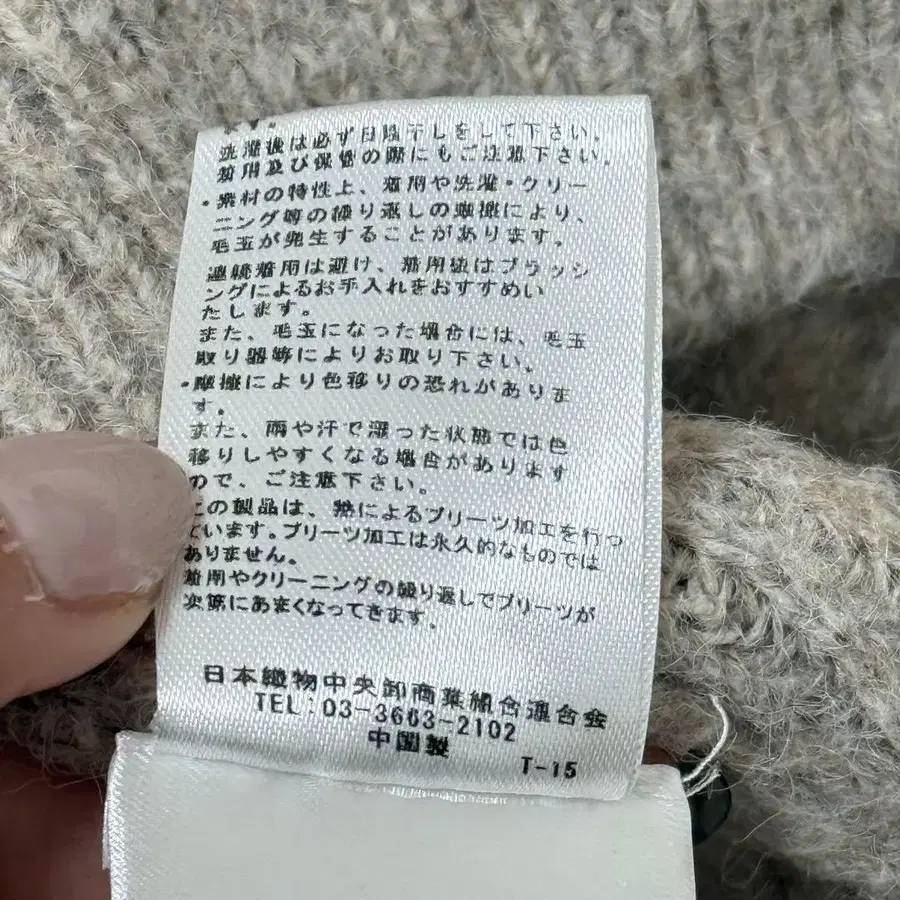 ます。
洗濯後は必ず日陰干しをして下さい。
着用及び保管の際にもご注意下さい。
・素材の特性上、着用や洗濯・クリー
ニング等の繰り返しの摩擦により、
毛玉が発生することがあります。
連続着用は避け、着用後はブラッシ
ングによるお手入れをおすすめい
たします。
また、毛玉になった場合には、毛玉
取り器等によりお取り下さい。
・摩擦により色移りの恐れがありま
す。
また、雨や汗で湿った状態では色
移りしやすくなる場合があります
ので、ご注意下さい。
この製品は、熱によるプリーツ加工を行っ
ています。プリーツ加工は永久的なものでは
ありません。
着用やクリーニングの繰り返しでプリーツが
次第にあまくなってきます。
日本織物中央卸商業組合連合会
TEL:03-3663-2102
中国製
T-15